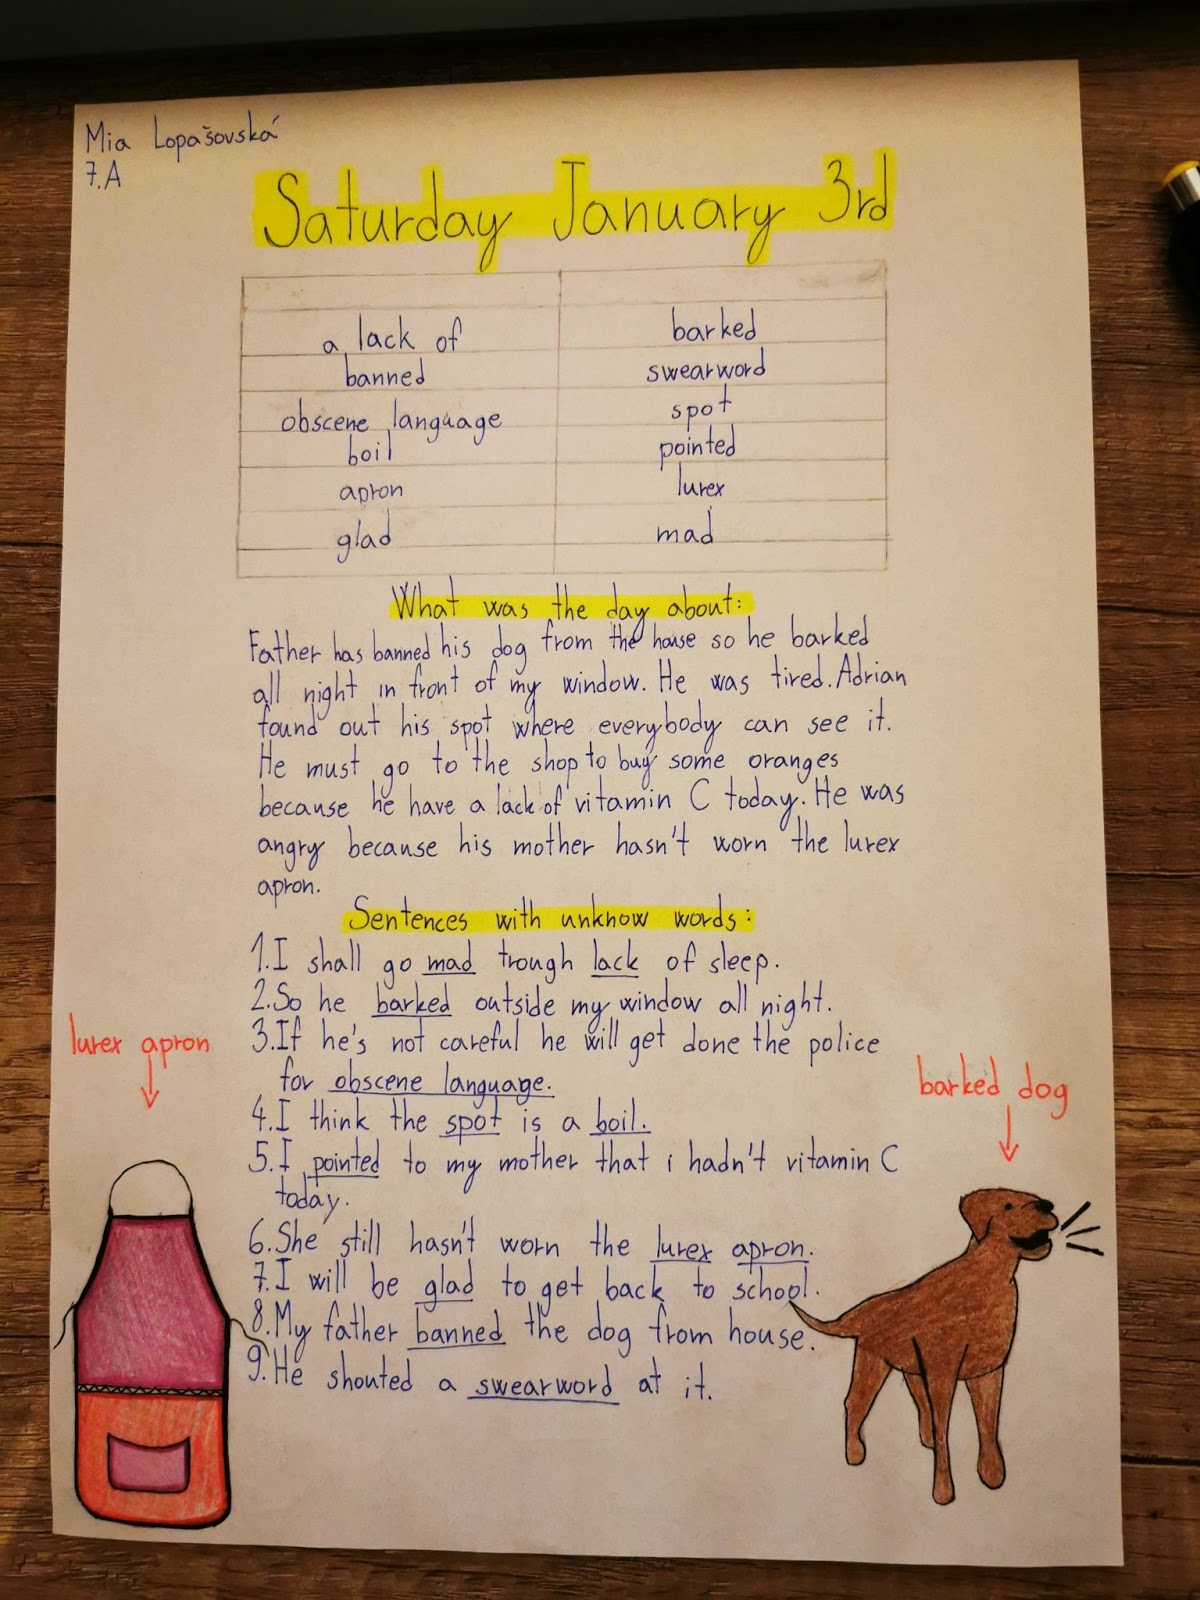 Mia Lopašovská
7.A
Saturday January 3rd
a lack of barked
banned swearword
obscene language spot
boil pointed
apron lurex
glad mad
What was the day about:
Father has banned his dog from the house so he barked
all night in front of my window. He was tired. Adrian
found out his spot where everybody can see it.
He must go to the shop to buy some oranges
because he have a lack of vitamin C today. He was
angry because his mother hasn't worn the lurex
apron.
Sentences with unknow words:
1. I shall go mad trough lack of sleep.
2. So he barked outside my window all night.
3. If he's not careful he will get done the police
for obscene language.
4. I think the spot is a boil.
5. I pointed to my mother that i hadn't vitamin C
today.
6. She still hasn't worn the lurex apron.
7. I will be glad to get back to school.
8. My father banned the dog from house.
9. He shouted a swearword at it.
lurex apron
barked dog